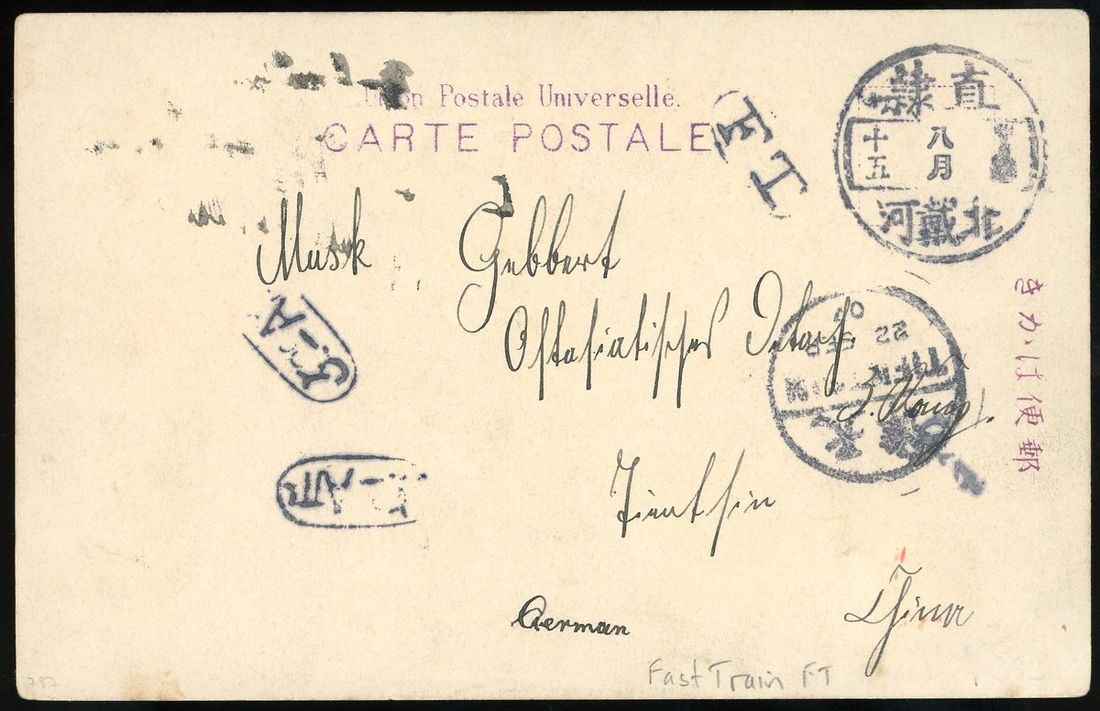 Union Postale Universelle.
CARTE POSTALE
FT
直隸
八月
十五
北戴河
きかは便郵
Musk Gebbert
Ostasiatisches Detach.
Tientsin
China
German
22 SEP 07
Fast Train FT